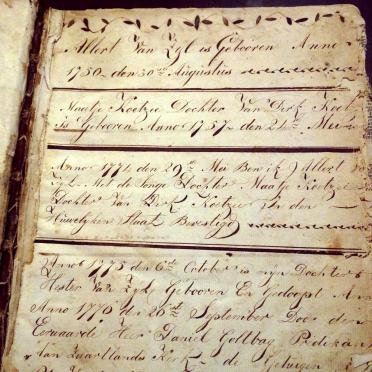 Albert Van Zyl is Gebooren Anno
1750 den 30ste Augustus
Maatje Koetzee Dochter Van Dirk Koet
Is Gebooren Anno 1757 den 24
Anno 1774 den 29ste Mei Ben ik Albert
Zyl Met de Jonge Dochter Maatje Koetzee
Dochter Van Dirk Koetzee In den
Huwelyken Staat Bevestigd
Anno 1775 den 6de October is myn Dochter
Hester Van Zyl Gebooren En Gedoopt An
Anno 1776 den 26ste September Door den
Eerwaarde Heer Daniel Goltbag Predikan
Van Zwartlands Kerk de Getuigen